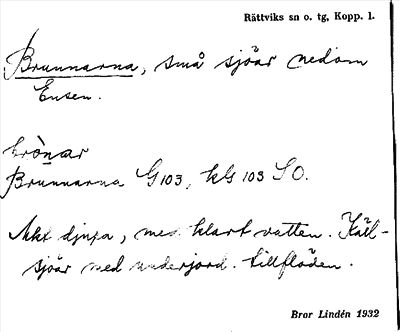 Rättviks sn o. tg, Kopp. l.
Brunnarna, små sjöar nedom
Ensen.
brò̀nar
Brunnarna G103, kG 103 SO.
Mkt djupa, med klart vatten. Käll-
sjöar med underjord. tillflöden.
Bror Lindén 1932